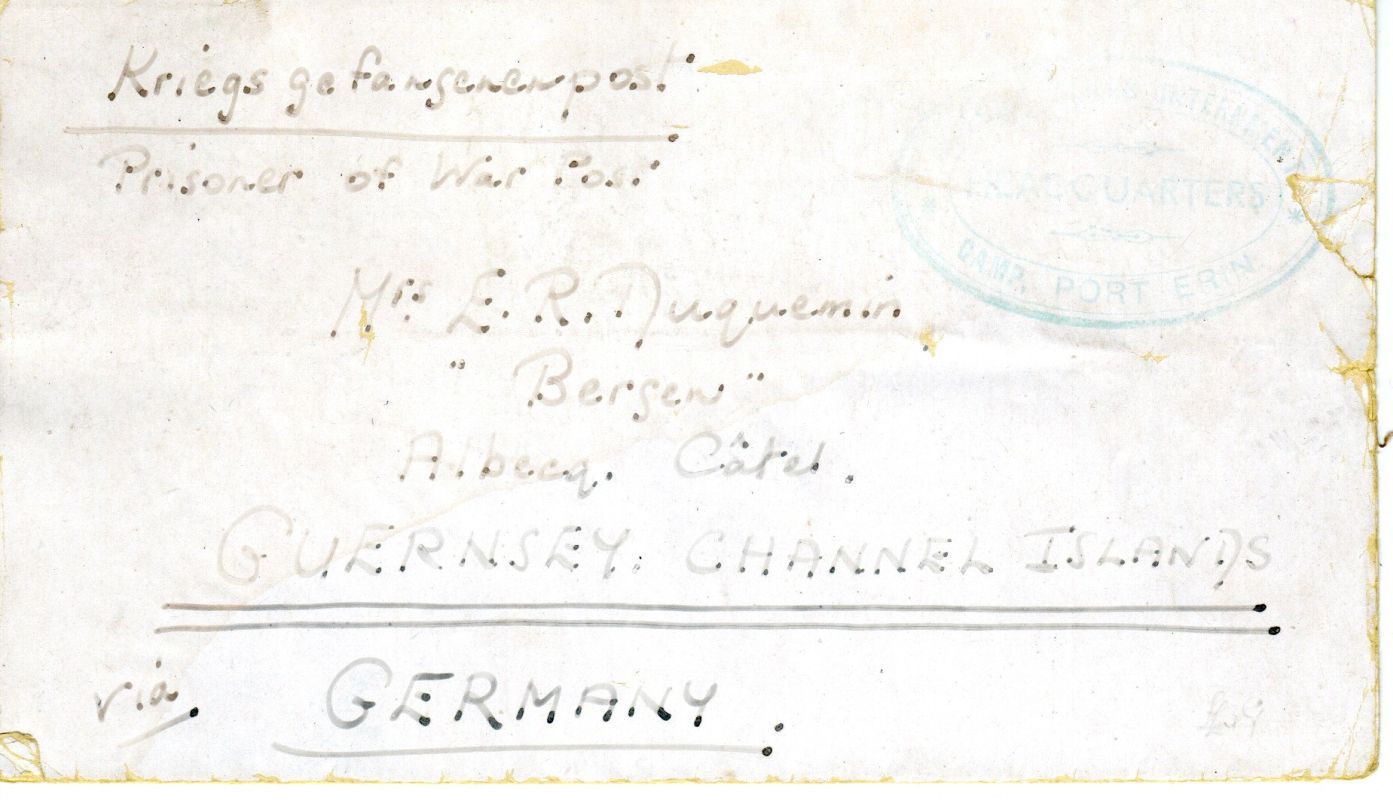 Kriegsgefangenenpost
Prisoner of War Post
INTERNMENT
HEADQUARTERS
CAMP, PORT ERIN.
Mrs E. R. Duquemin
"Bergen"
Albecq. Câtel.
GUERNSEY. CHANNEL ISLANDS
via GERMANY.